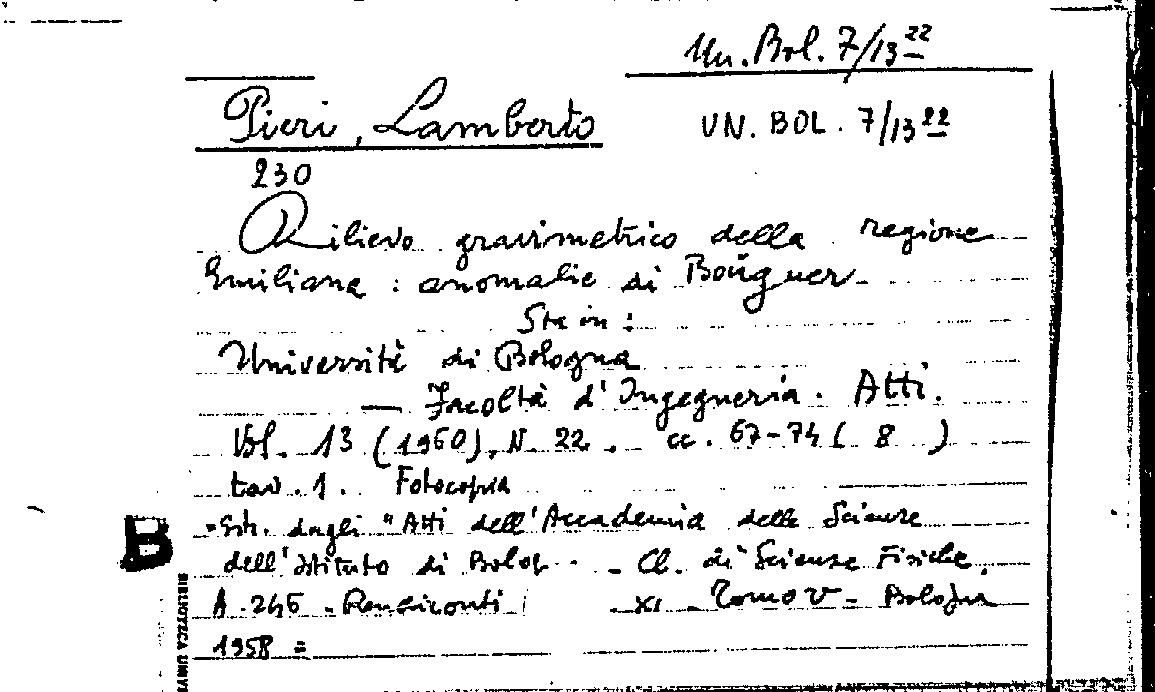 Un. Bol. 7/13 22
Pieri, Lamberto
UN. BOL. 7/13 22
230
Rilievo gravimetrico della regione
Emiliana : anomalie di Bouguer
Sta in :
Università di Bologna
— Facoltà d'Ingegneria. Atti.
Vol. 13 (1960), N. 22. cc. 67-74 ( 8 )
tav. 1. Fotocopia
=Estr. dagli "Atti dell'Accademia delle Scienze
dell'Istituto di Bolog - Cl. di Scienze Fisiche.
A. 246 - Rendiconti XI - Tomo V - Bologna
1958 =
B
BIBLIOTECA